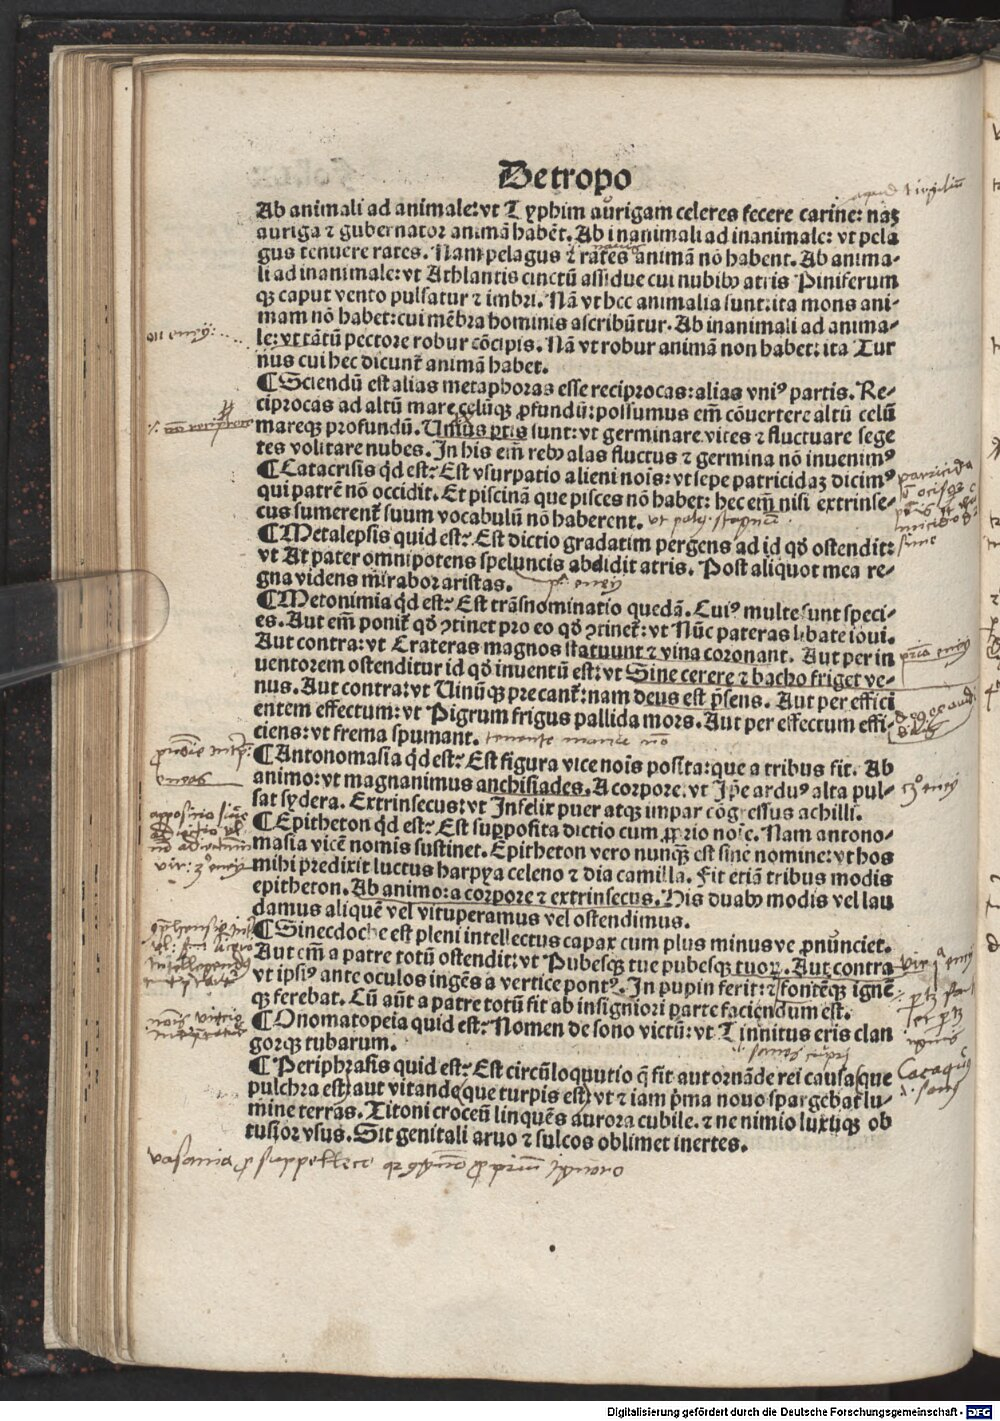 De tropo
Ab animali ad animale: vt Typhim aurigam celeres fecere carine: naꝫ
auriga ⁊ gubernator animā habēt. Ab inanimali ad inanimale: vt pela
gus tenuere rates. Nam pelagus ⁊ rates animā nō habent. Ab anima-
li ad inanimale: vt Athlantis cinctū assidue cui nubibꝰ atris Piniferum
qꝫ caput vento pulsatur ⁊ imbri. Nā vt hec animalia sunt: ita mons ani-
mam nō habet: cui mēbra hominis ascribūtur. Ab inanimali ad anima-
le: vt tātū pectore robur cōcipis. Nā vt robur animā non habet: ita Tur
nus cui hec dicunt̄ animā habet.
¶ Sciendū est alias metaphoras esse reciprocas: alias vniꝰ partis. Re-
ciprocas ad altū mare celūqꝫ ꝓfundū: possumus em̄ cōuertere altū celū
mareqꝫ profundū. Uniꝰ ptis sunt: vt germinare vites ⁊ fluctuare sege
tes volitare nubes. In his em̄ rebꝰ alas fluctus ⁊ germina nō inuenimꝰ
¶ Catacrisis qd̄ est? Est vsurpatio alieni nois̄: vt sepe patricidaꝫ dicimꝰ
qui patrē nō occidit. Et piscinā que pisces nō habet: hec em̄ nisi extrinse-
cus sumerent̄ suum vocabulū nō haberent.
¶ Metalepsis quid est? Est dictio gradatim pergens ad id qd̄ ostendit:
vt At pater omnipotens speluncis abdidit atris. Post aliquot mea re-
gna videns mirabor aristas.
¶ Metonimia qd̄ est? Est trāsnominatio quedā. Cuiꝰ multe sunt speci-
es. Aut em̄ ponit̄ qd̄ ꝯtinet pro eo qd̄ ꝯtinet̄: vt Nūc pateras libate ioui.
Aut contra: vt Crateras magnos statuunt ⁊ vina coronant. Aut per in
uentorem ostenditur id qd̄ inuentū est: vt Sine cerere ⁊ bacho friget ve-
nus. Aut contra: vt Uinūqꝫ precant̄: nam deus est p̄sens. Aut per effici
entem effectum: vt Pigrum frigus pallida mors. Aut per effectum effi-
ciens: vt frema spumant.
¶ Antonomasia qd̄ est? Est figura vice nois̄ posita: que a tribus fit. Ab
animo: vt magnanimus anchisiades. A corpore. vt Ip̄e arduꝰ alta pul-
sat sydera. Extrinsecus: vt Infelix puer atqꝫ impar cōgressus achilli.
¶ Epitheton qd̄ est? Est supposita dictio cum ꝓprio noīe. Nam antono-
masia vicē nomis̄ sustinet. Epitheton vero nunqꝫ est sine nomine: vt hos
mihi predixit luctus harpya celeno ⁊ dia camilla. Fit etiā tribus modis
epitheton. Ab animo: a corpore ⁊ extrinsecus. His duabꝰ modis vel lau
damus aliquē vel vituperamus vel ostendimus.
¶ Sinecdoche est pleni intellectus capax cum plus minusve ꝓnūnciet.
Aut em̄ a patre totū ostendit: vt Pubesqꝫ tue pubesqꝫ tuoꝝ. Aut contra
vt ipsiꝰ ante oculos ingēs a vertice pontꝰ. In pupin ferit: ⁊ fontēqꝫ ignē
qꝫ ferebat. Cū aūt a patre totū fit ab insigniori parte faciendum est.
¶ Onomatopeia quid est? Nomen de sono victū: vt Tinnitus eris clan
gorqꝫ tubarum.
¶ Periphrasis quid est? Est circūloquutio q̄ fit aut ornāde rei causa que
pulchra est aut vitande que turpis est: vt ⁊ iam p̄ma nouo spargebat lu-
mine terras. Titoni croceū linquēs aurora cubile. ⁊ ne nimio luxuqꝫ ob
tusior vsus. Sit genitali aruo ⁊ sulcos oblimet inertes.
Digitalisierung gefördert durch die Deutsche Forschungsgemeinschaft - DFG